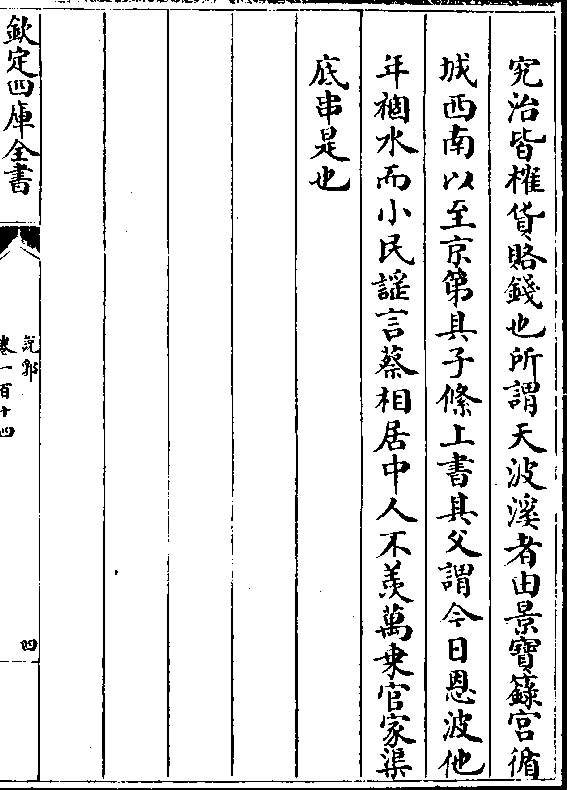 究治皆權貨賂錢也所謂天波溪者由景寶籙宮循
城西南以至京第其子絛上書其父謂今日恩波他
年禍水而小民謡言蔡相居中人不羨萬乗官家渠
底串是也
欽定四庫全書
説郛
卷一百十四
四